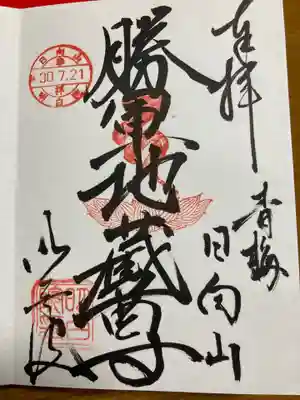 奉拝
青梅
日向山
勝軍地蔵尊
30.7.21
明白院